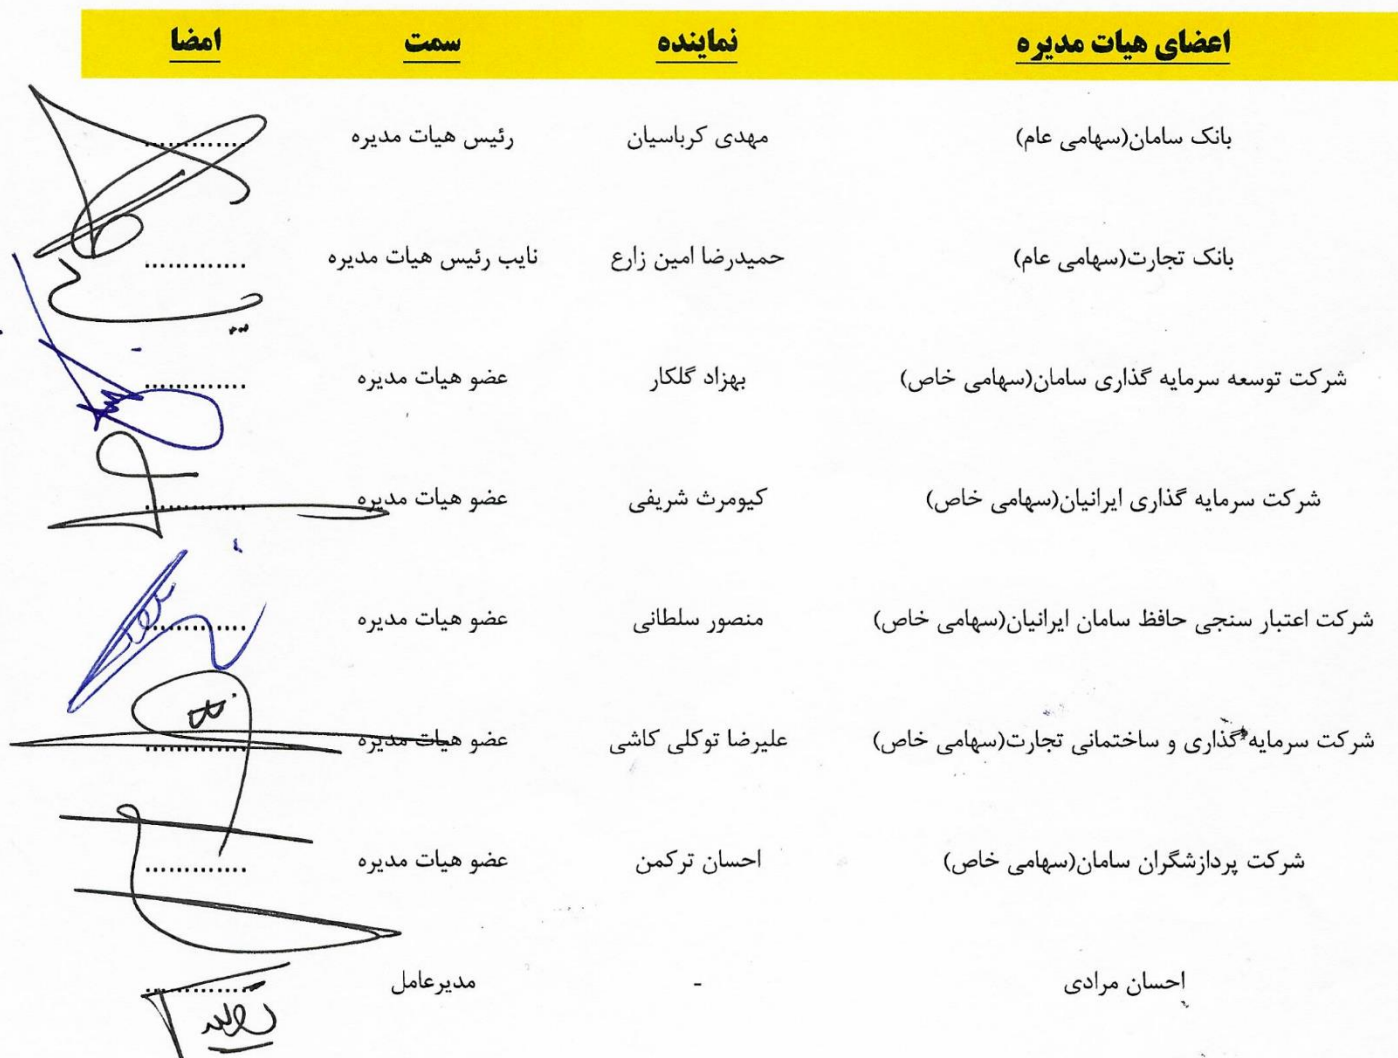 اعضای هیات مدیره نماینده سمت امضا
بانک سامان(سهامی عام) مهدی کرباسیان رئیس هیات مدیره .............
بانک تجارت(سهامی عام) حمیدرضا امین زارع نایب رئیس هیات مدیره .............
شرکت توسعه سرمایه گذاری سامان(سهامی خاص) بهزاد گلکار عضو هیات مدیره .............
شرکت سرمایه گذاری ایرانیان(سهامی خاص) کیومرث شریفی عضو هیات مدیره .............
شرکت اعتبار سنجی حافظ سامان ایرانیان(سهامی خاص) منصور سلطانی عضو هیات مدیره .............
شرکت سرمایه گذاری و ساختمانی تجارت(سهامی خاص) علیرضا توکلی کاشی عضو هیات مدیره .............
شرکت پردازشگران سامان(سهامی خاص) احسان ترکمن عضو هیات مدیره .............
احسان مرادی - مدیرعامل .............